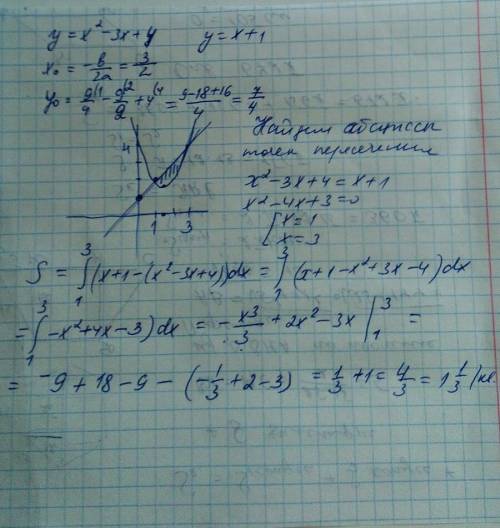 y = x² - 3x + 4 y = x + 1
x₀ = -b/2a = 3/2
y₀ = 9/4 - 9/2 + 4 = (9 - 18 + 16)/4 = 7/4
Найдем абсциссы
точек пересечения
x² - 3x + 4 = x + 1
x² - 4x + 3 = 0
[x = 1
x = 3
4
1 3
S = ∫₁³ (x + 1 - (x² - 3x + 4)) dx = ∫₁³ (x + 1 - x² + 3x - 4) dx
= ∫₁³ -x² + 4x - 3) dx = -x³/3 + 2x² - 3x |₁³ =
= -9 + 18 - 9 - (-1/3 + 2 - 3) = 1/3 + 1 = 4/3 = 1 1/3